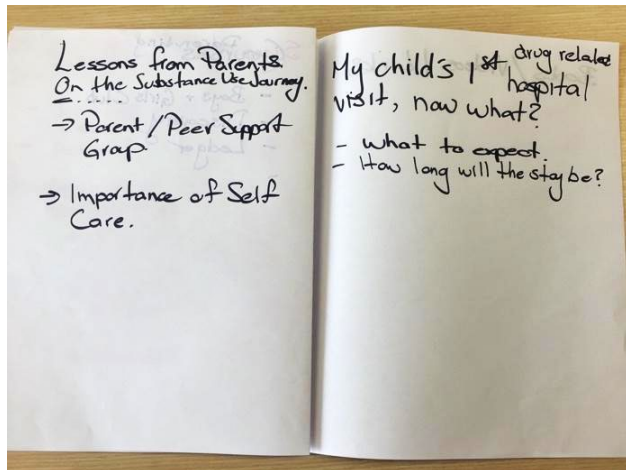 Lessons from Parents
On the Substance Use Journey.
→ Parent/Peer Support
Group
→ Importance of Self
Care.
My child's 1st drug related
hospital
visit, now what?
- what to expect.
- How long will the stay be?